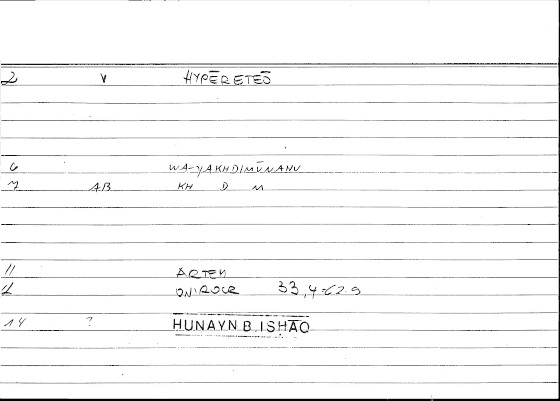 2 V HYPĒRETĒS
6 WA-YAKHDIMŪNAHU
7 AB KH D M
11 ARTEM
12 ONIROCR 33,4=62.9
14 ? HUNAYN B. ISHĀQ